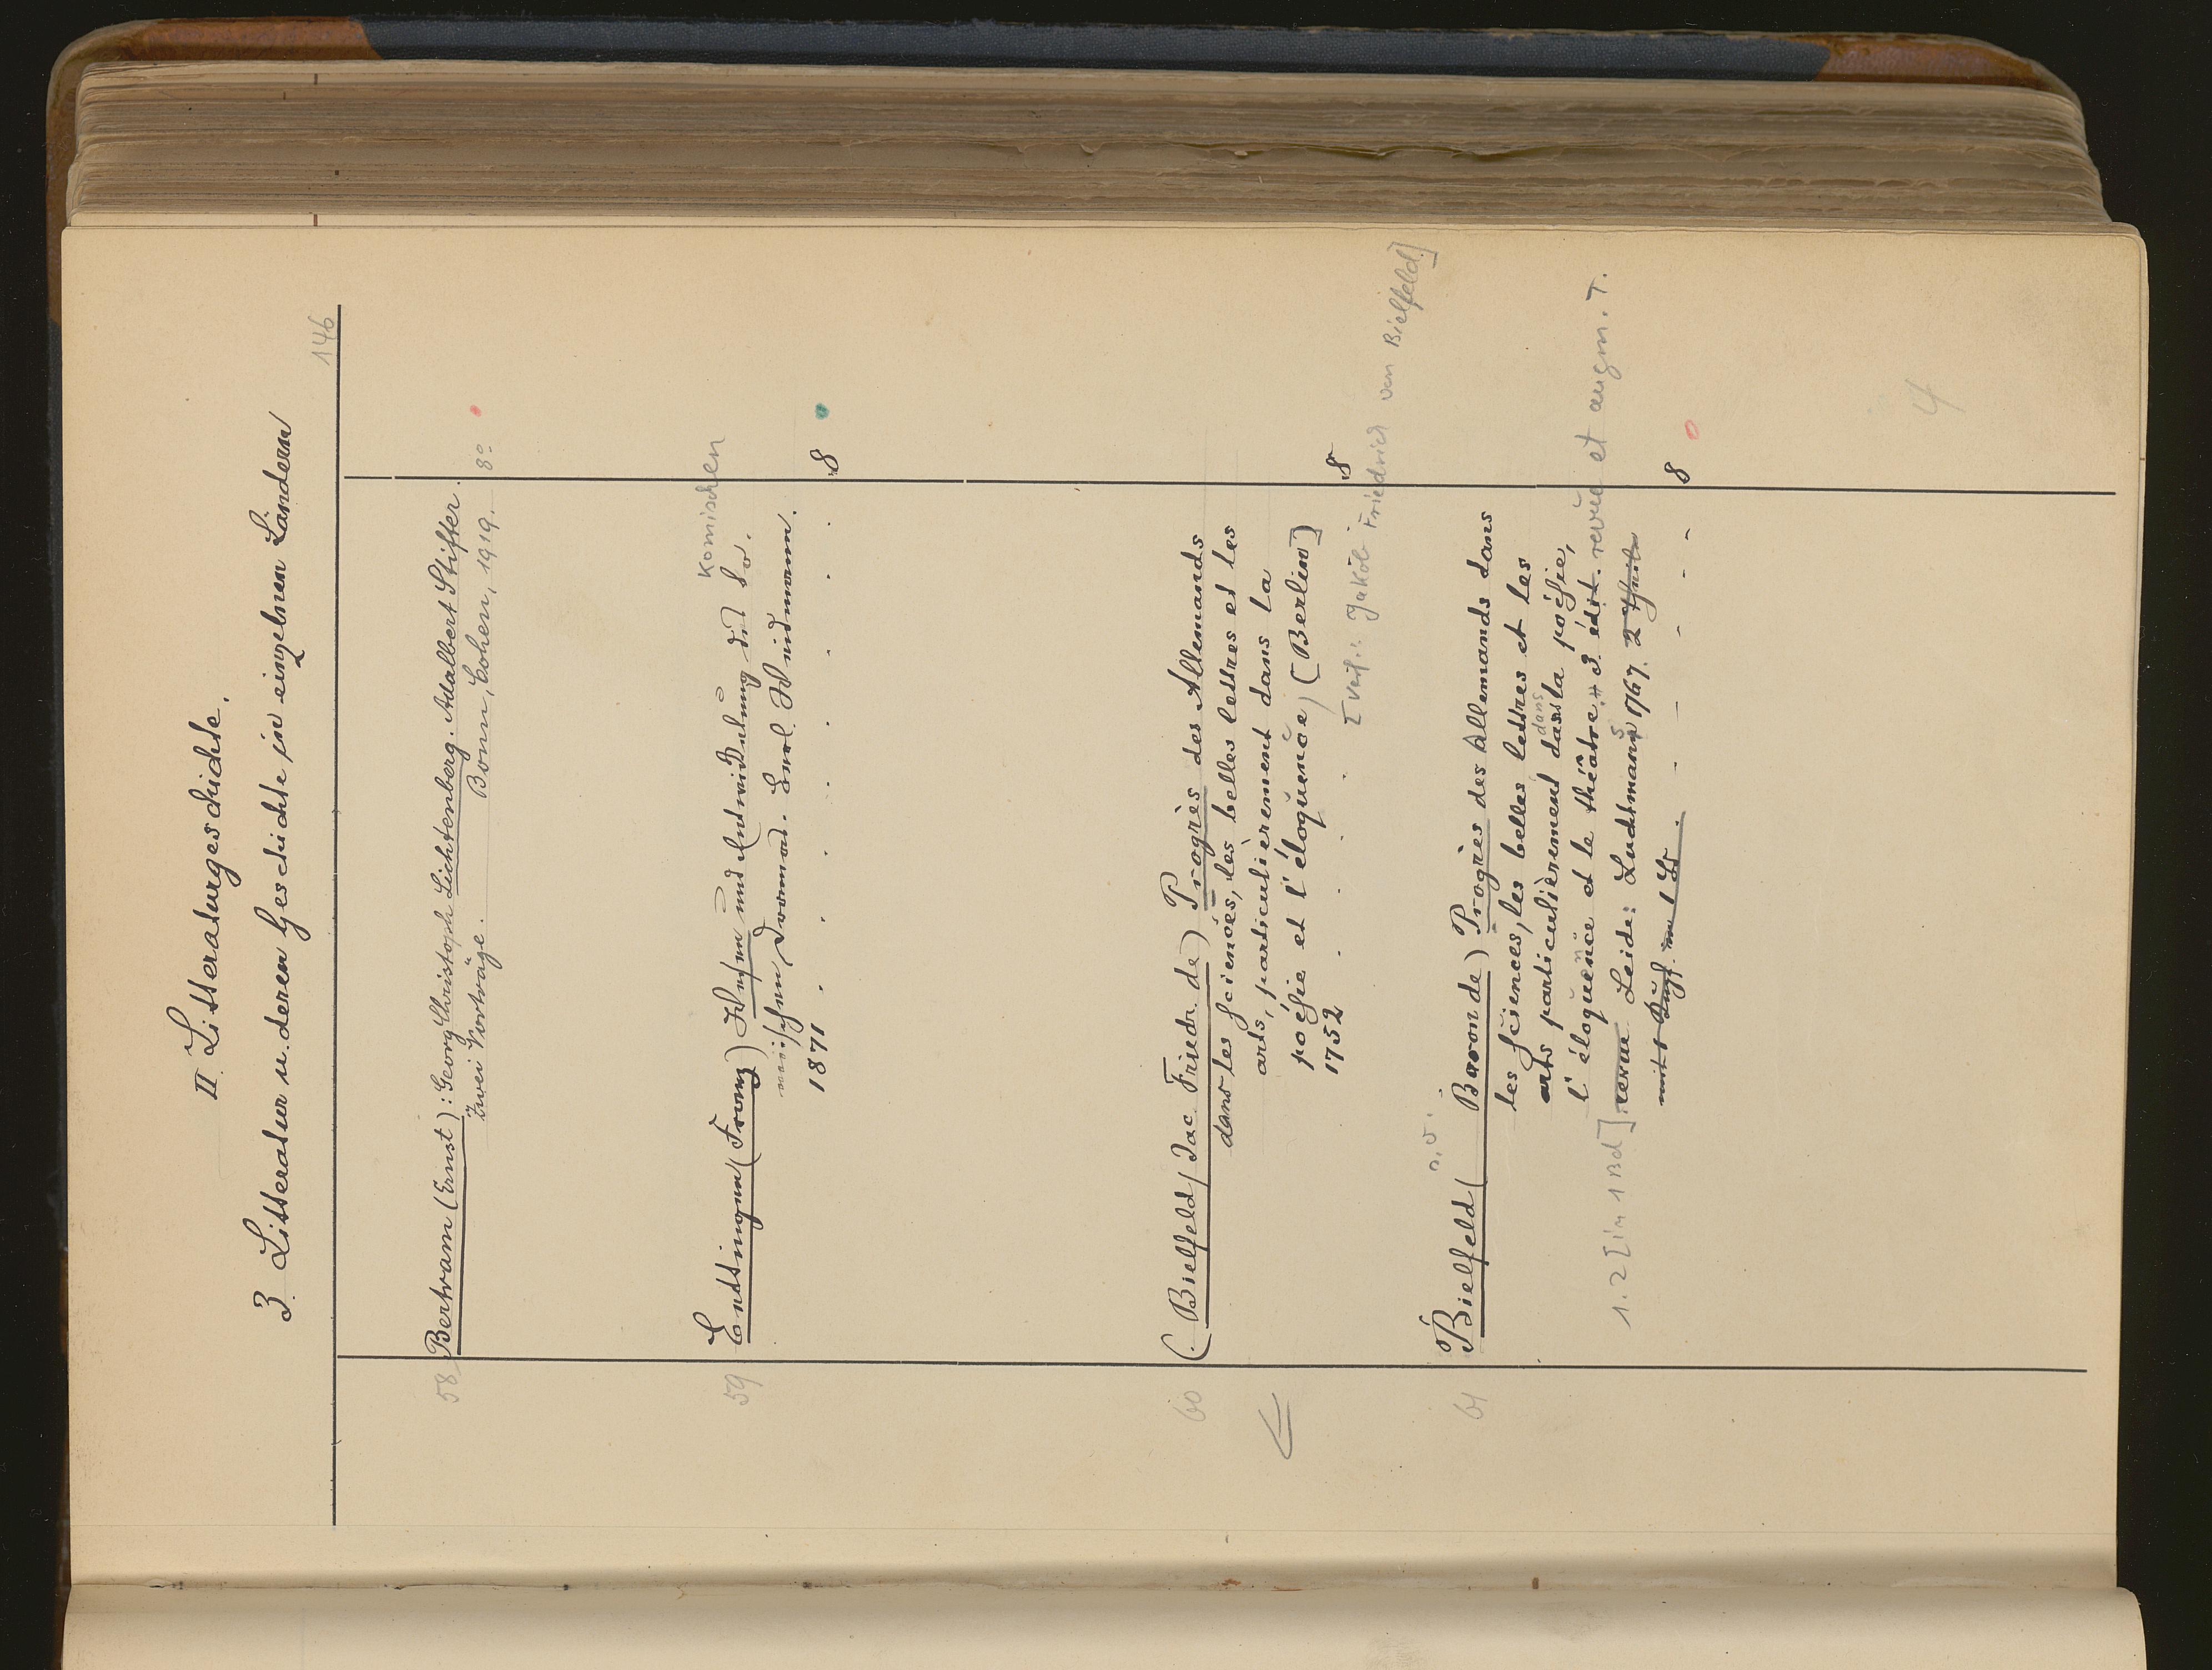 II. Litteraturgeschichte.
3. Litteratur u. deren Geschichte in einzelnen Ländern
146
58 Bertram (Ernst): Georg Christoph Lichtenberg. Adalbert Stifter.
Zwei Vorträge. Bonn, Cohen, 1919. 8°
Komischen
59 (Franz) Wesen und Entwickelung des ko-
mischen Dramas. Berl. Weidmann.
1871 8
60 (Bielfeld, Jac. Friedr. de) Progrès des Allemands
dans les sciences, les belles lettres et les
arts, particulièrement dans la
poésie et l'éloquence, (Berlin)
1752 8
[Verf.: Jakob Friedrich von Bielfeld]
61 Bielfeld (Baron de) Progrès des Allemands dans
les sciences, les belles lettres et les
arts particulièrement dans la poésie,
dans
l'éloquence et le théatre. 3. édit. revue et augm. T.
1. 2 [in 1 Bd] revue Leide: Luchtmann s 1767. 2 Theile
in 1 Bd. 8
4